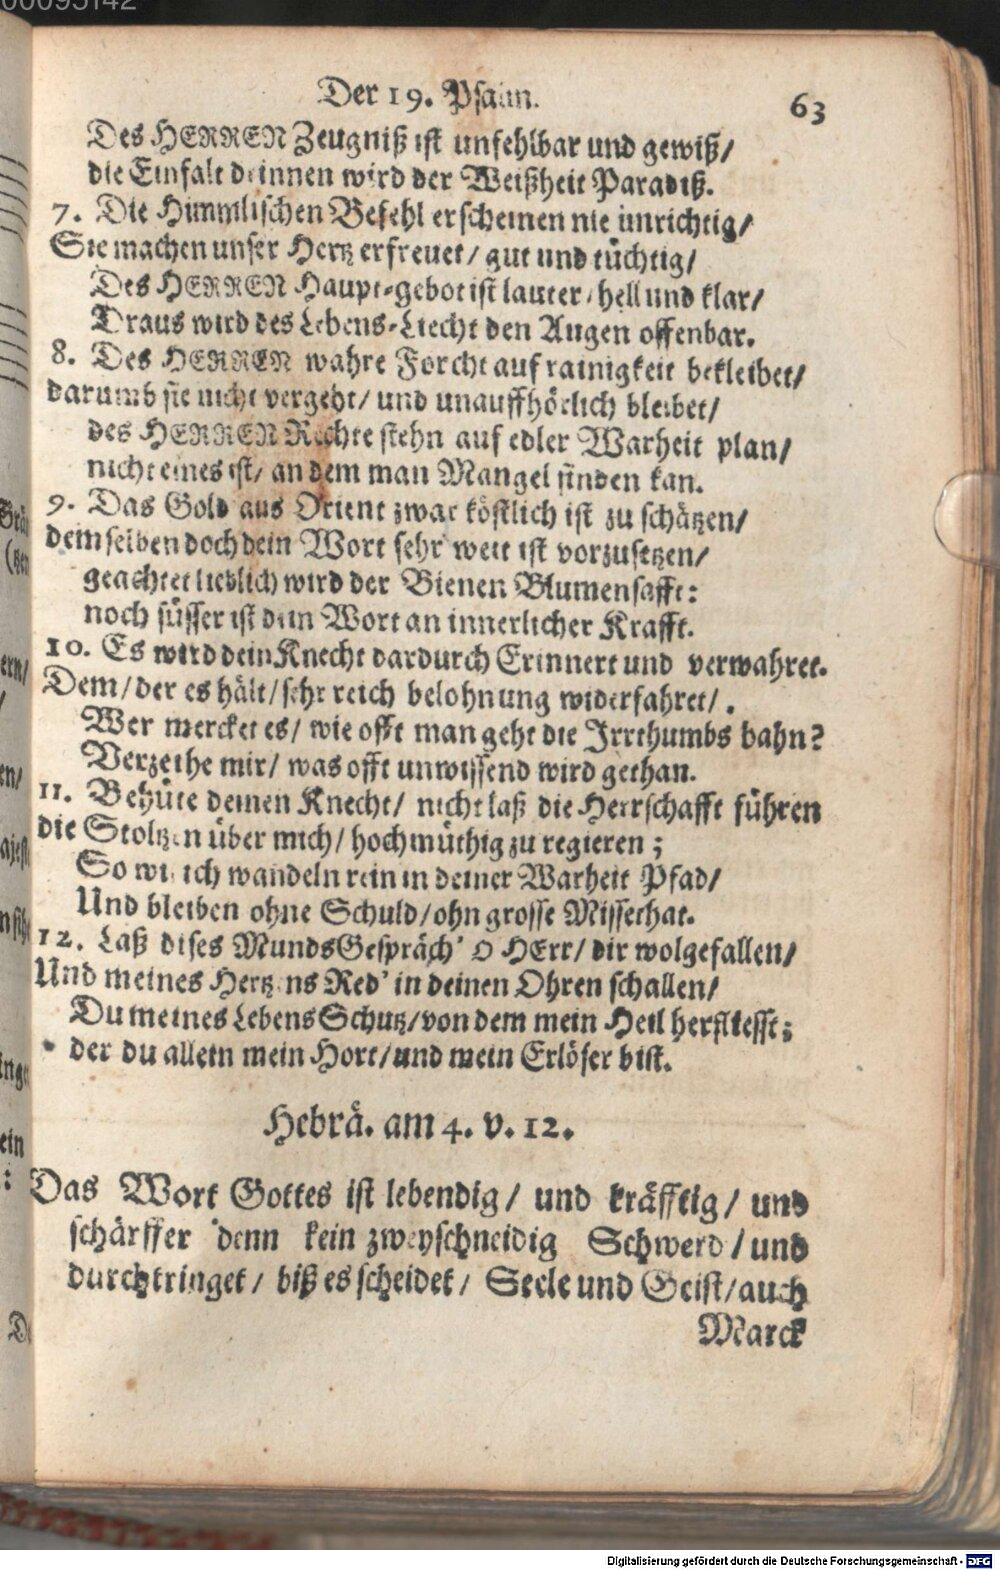 00095142
Der 19. Psalm. 63
Des HERREN Zeugniß ist unfehlbar und gewiß/
die Einfalt drinnen wird der Weißheit Paradiß.
7. Die Himmlischen Befehl erscheinen nie unrichtig/
Sie machen unser Hertz erfreuet/ gut und tüchtig/
Des HERREN Haupt-gebot ist lauter/ hell und klar/
Draus wird des Lebens-Liecht den Augen offenbar.
8. Des HERREN wahre Forcht auf rainigkeit bekleibet/
darumb sie nicht vergeht/ und unauffhörlich bleibet/
des HERREN Rechte stehn auf edler Warheit plan/
nicht eines ist/ an dem man Mangel finden kan.
9. Das Gold aus Orient zwar köstlich ist zu schätzen/
demselben doch dein Wort sehr weit ist vorzusetzen/
geachtet lieblich wird der Bienen Blumensafft:
noch süsser ist dein Wort an innerlicher Krafft.
10. Es wird dein Knecht dardurch Erinnert und verwahret.
Dem/ der es hält/ sehr reich belohnung widerfahret/.
Wer mercket es/ wie offt man geht die Irrthumbs bahn?
Verzeihe mir/ was offt unwissend wird gethan.
11. Behüte deinen Knecht/ nicht laß die Herrschafft führen
die Stoltzen über mich/ hochmüthig zu regieren;
So will ich wandeln rein in deiner Warheit Pfad/
Und bleiben ohne Schuld/ ohn grosse Missethat.
12. Laß dises Munds Gespräch' O HErr/ dir wolgefallen/
Und meines Hertzens Red' in deinen Ohren schallen/
Du meines Lebens Schutz/ von dem mein Heil herfliesst;
der du allein mein Hort/ und mein Erlöser bist.
Hebrä. am 4. v. 12.
Das Wort Gottes ist lebendig/ und kräfftig/ und
schärffer denn kein zweyschneidig Schwerd/ und
durchtringet/ biß es scheidet/ Seele und Geist/ auch
Marck
Digitalisierung gefördert durch die Deutsche Forschungsgemeinschaft - DFG